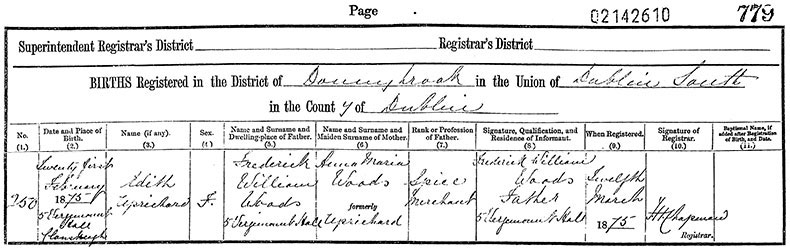 Page
02142610
779
Superintendent Registrar's District
Registrar's District
BIRTHS Registered in the District of Donnybrook in the Union of Dublin South
in the County of Dublin
No. (1.)
Date and Place of Birth. (2.)
Name (if any). (3.)
Sex. (4.)
Name and Surname and Dwelling-place of Father. (5.)
Name and Surname and Maiden Surname of Mother. (6.)
Rank or Profession of Father. (7.)
Signature, Qualification, and Residence of Informant. (8.)
When Registered. (9.)
Signature of Registrar. (10.)
Baptismal Name, if added after Registration of Birth, and Date. (11.)
250
Twenty first
February
1875
5 Vergemount
Hall
Clonskeagh
Edith
Uprichard
F.
Frederick
William
Woods
5 Vergemount Hall
Anna Maria
Woods
formerly
Uprichard
Spice
Merchant
Frederick William
Woods
Father
5 Vergemount Hall
Twelfth
March
1875
Chapman
Registrar.